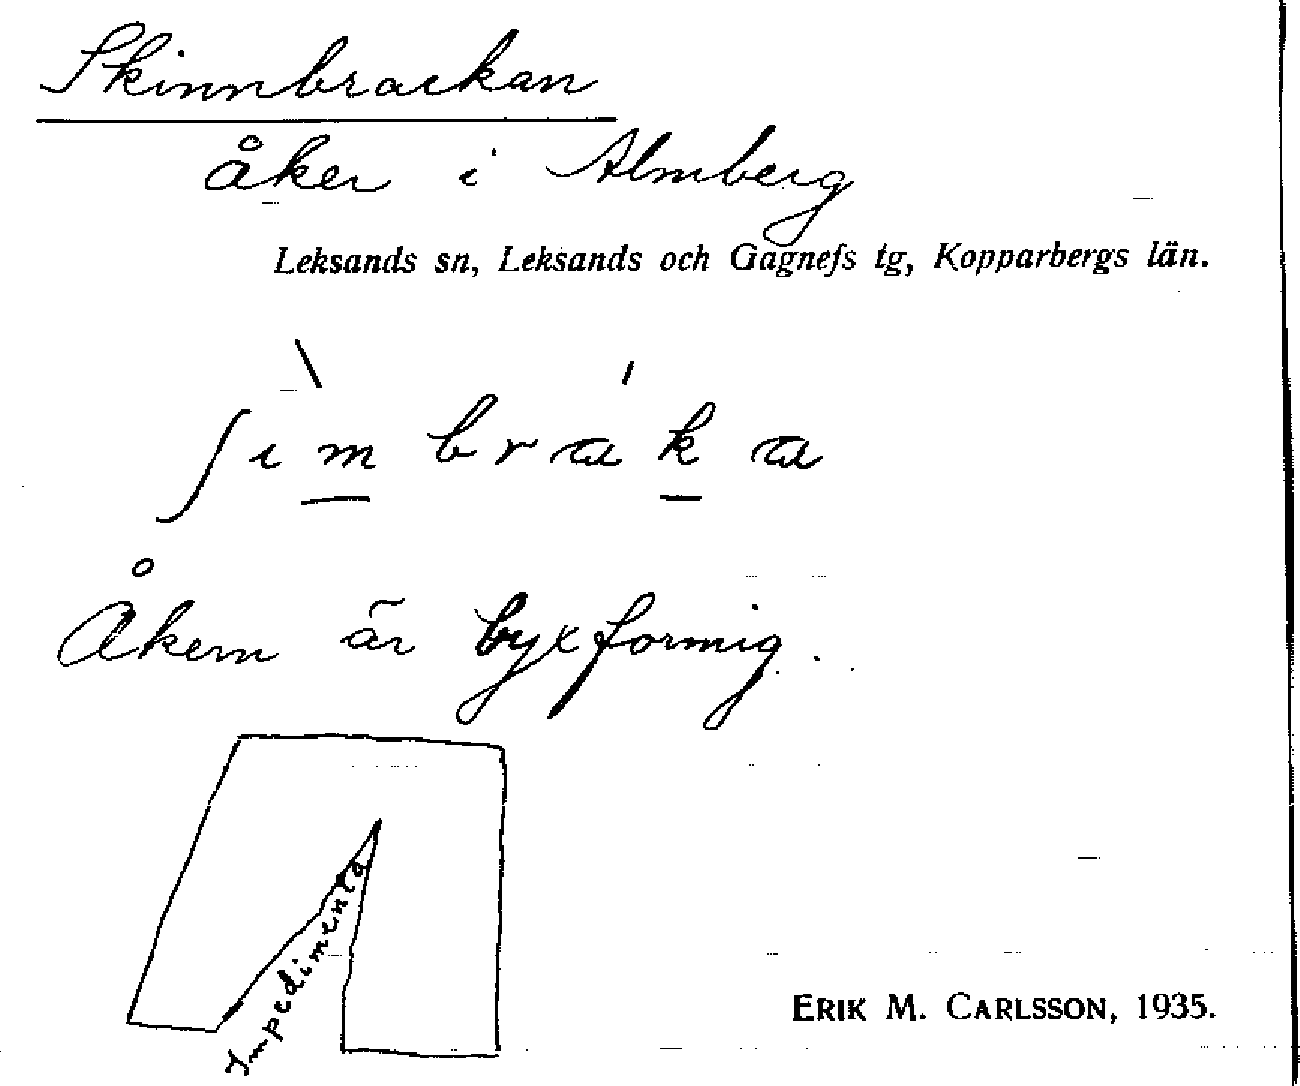 Skinnbrackan
åker i Almberg
Leksands sn, Leksands och Gagnefs tg, Kopparbergs län.
ʃìm bráka
Åkern är byxformig.
Impedimenta
ERIK M. CARLSSON, 1935.